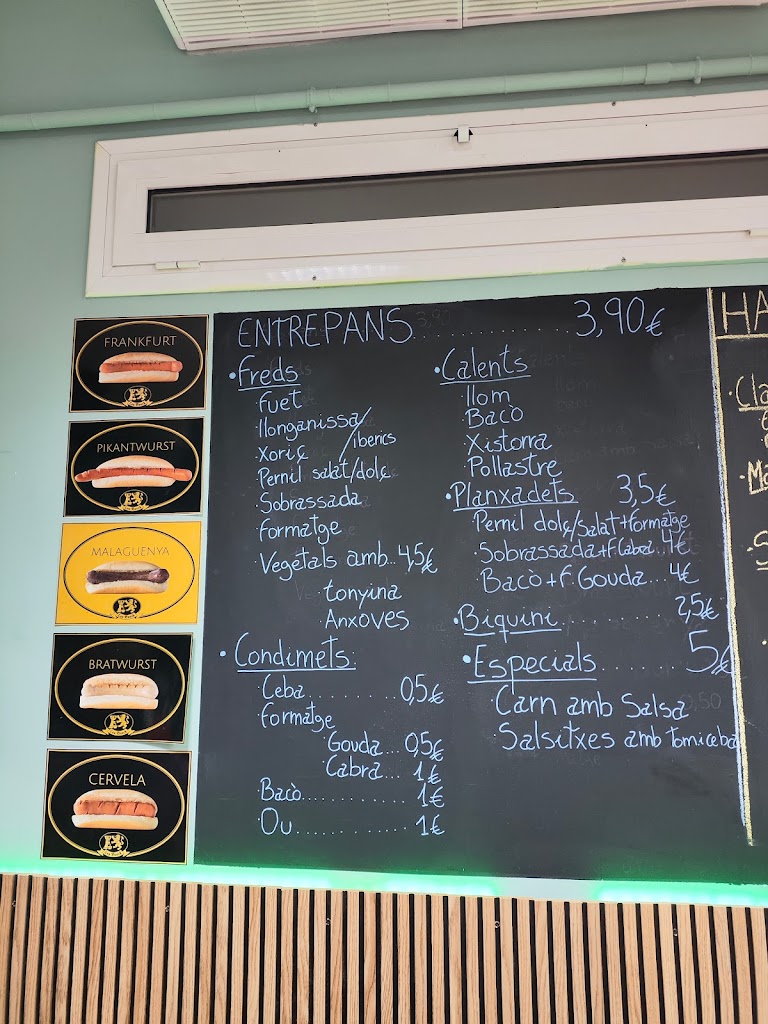 FRANKFURT
PIKANTWURST
MALAGUENYA
BRATWURST
CERVELA
ENTREPANS.................3,90€
·Freds
fuet
·llonganissa/
Xoriç /iberics
·Pernil salat/dolç
·Sobrassada
formatge
·Vegetals amb...4,5€
tonyina
·Anxoves
·Condimets:
·Ceba..........0,5€
formatge
·Gouda...0,5€
Cabra...1€
·Bacò...........1€
·Ou............1€
·Calents
·llom
Bacò
·Xistorra
·Pollastre
·Planxadets 3,5€
·Pernil dolç/Salat+formatge
·Sobrassada+f.Cabra..4€
·Bacò+f.Gouda...4€
·Biquini...........2,5€
·Especials........5€
·Carn amb Salsa
·Salsitxes amb tomiceba
HA
·Cla
·Ma
·S